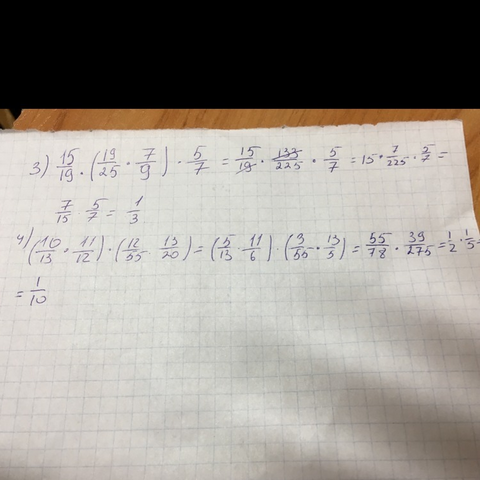 3) 15/19 · (19/25 · 7/9) · 5/7 = 15/19 · 133/225 · 5/7 = 15 · 7/225 · 5/7 =
7/15 5/7 = 1/3
4) (10/13 · 11/12) · (12/55 13/20) = (5/13 · 11/6) · (3/55 · 13/5) = 55/78 · 39/275 = 1/2 · 1/5 =
= 1/10